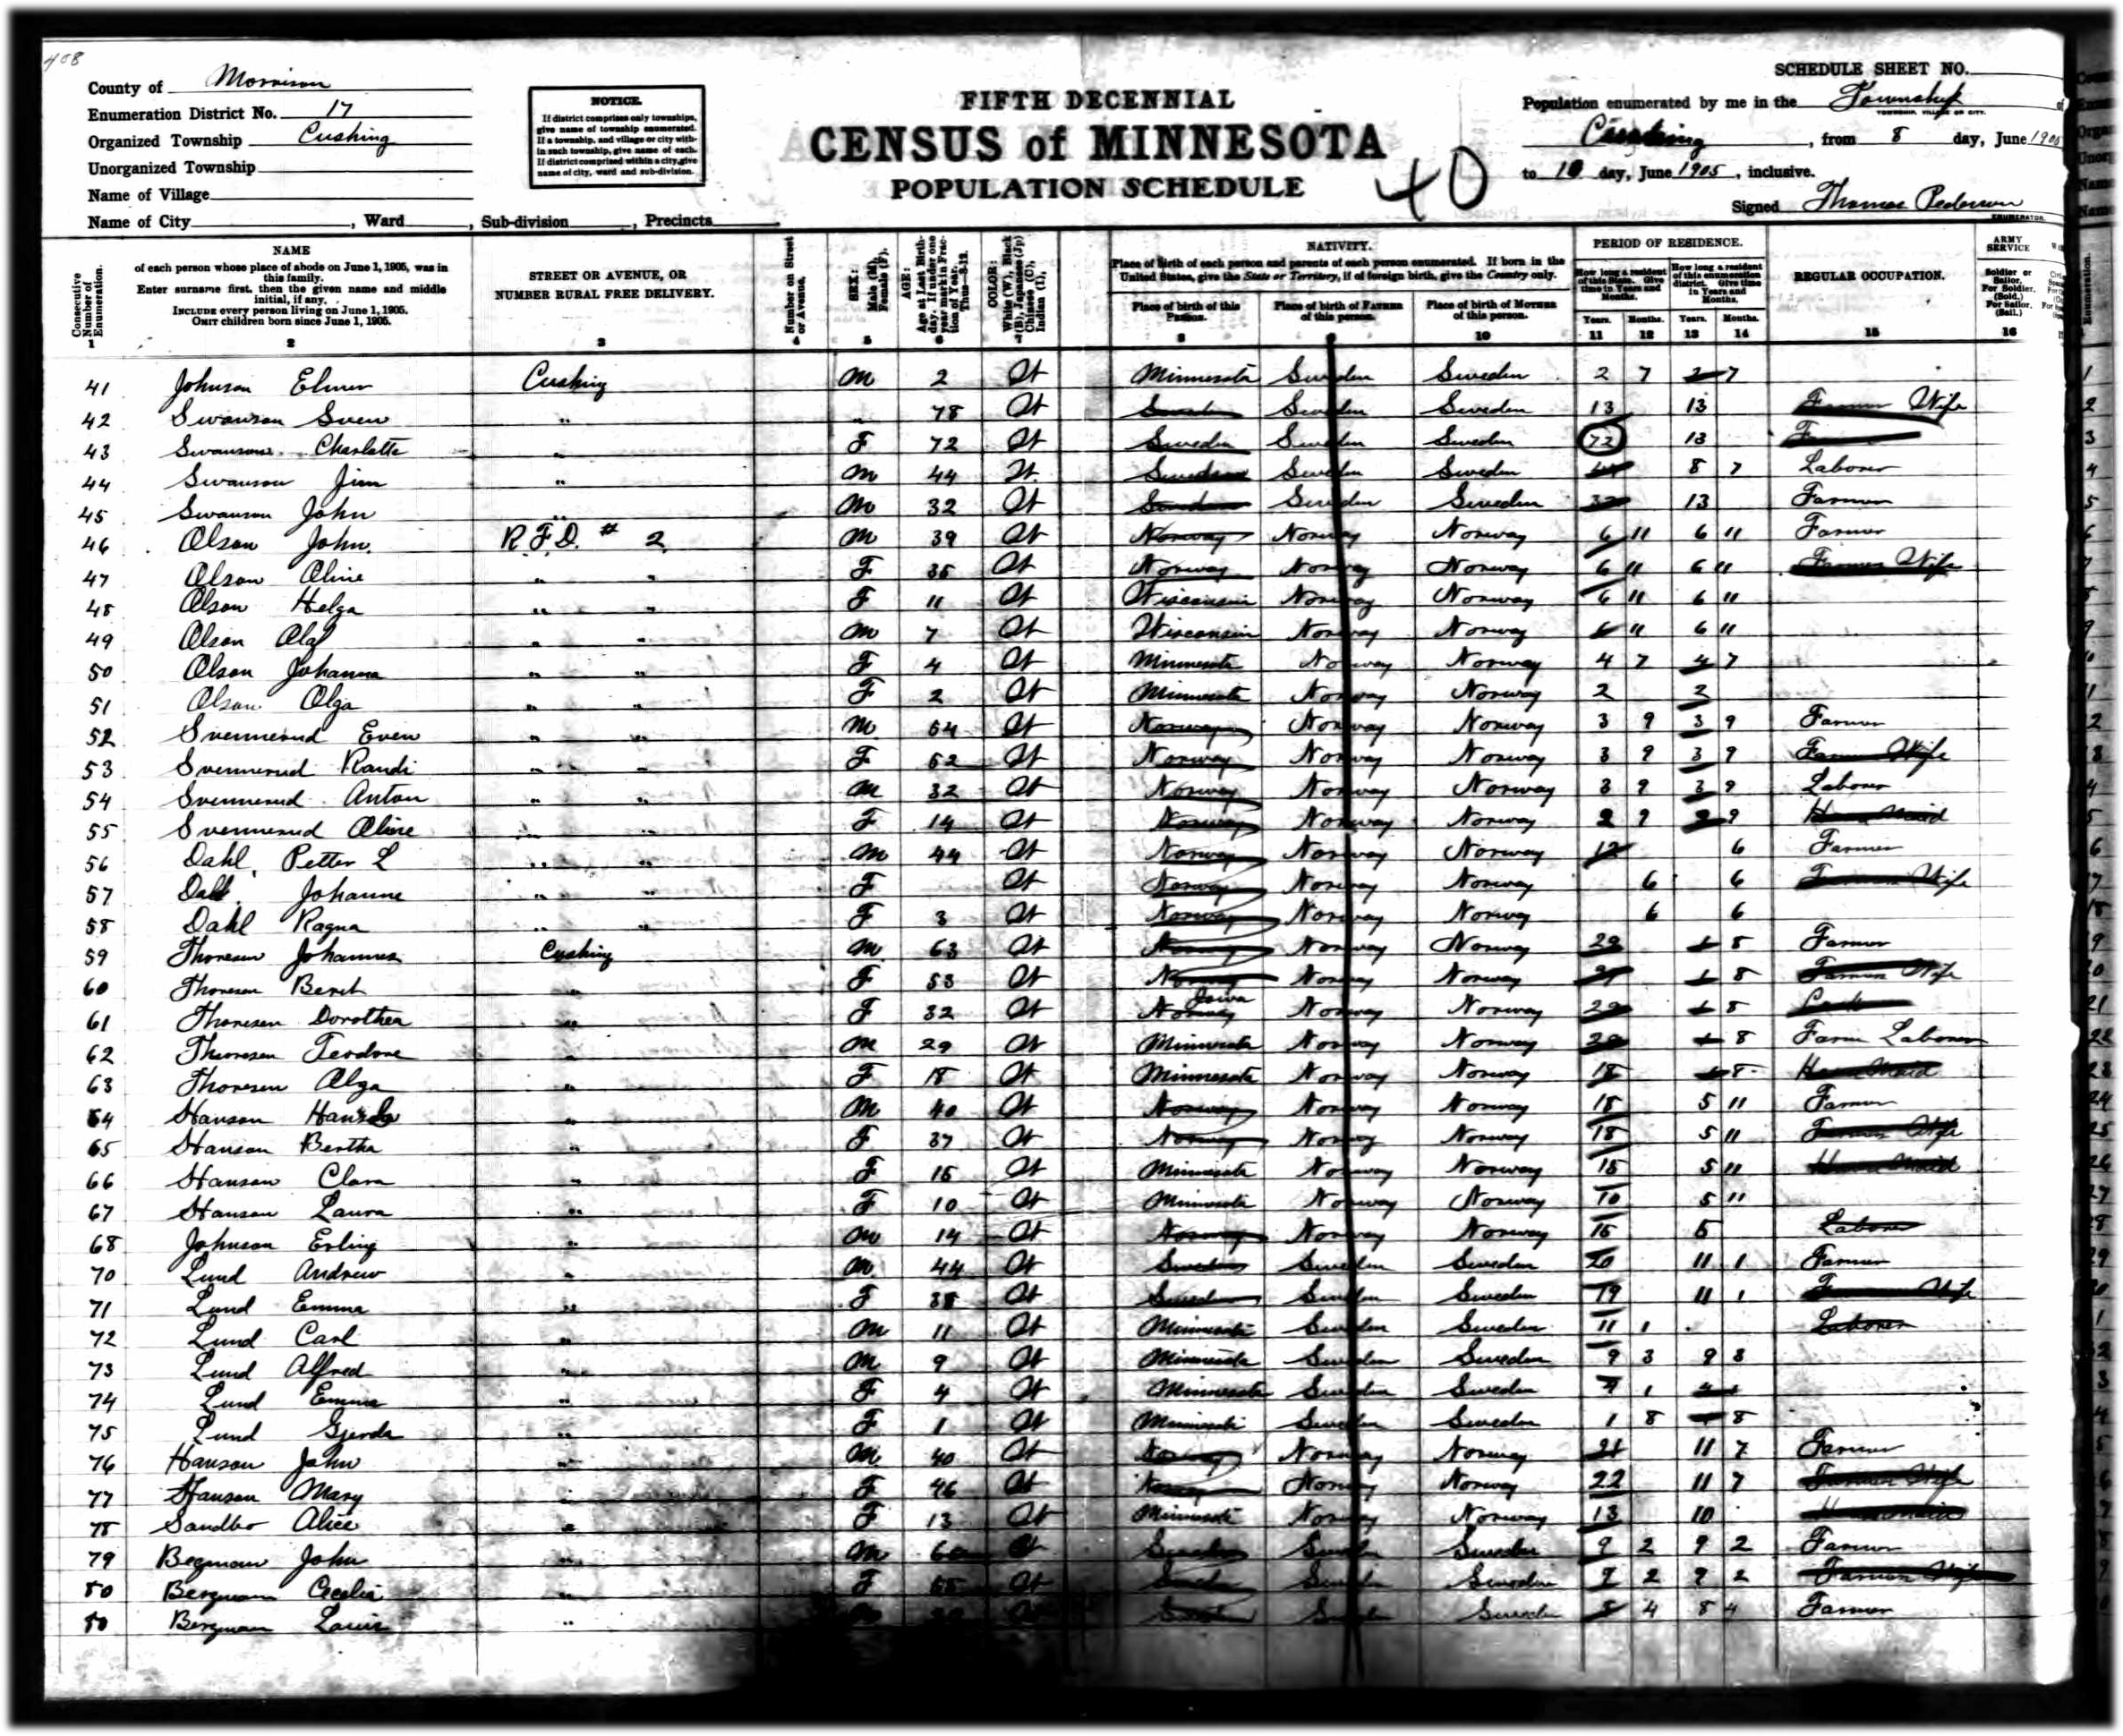 408
County of Morrison
Enumeration District No. 17
Organized Township Cushing
Unorganized Township
Name of Village
Name of City , Ward , Sub-division , Precincts
NOTICE.
If district comprises only townships, give name of township enumerated. If a township, and village or city within such township, give name of each. If district comprised within a city, give name of city, ward and sub-division.
FIFTH DECENNIAL
CENSUS of MINNESOTA
POPULATION SCHEDULE
40
SCHEDULE SHEET NO.
Population enumerated by me in the Township
TOWNSHIP, VILLAGE OR CITY.
Cushing , from 8 day, June 1905
to 10 day, June 1905, inclusive.
Signed Thomas Pederson
ENUMERATOR.
Consecutive Number of Enumeration. 1
NAME
of each person whose place of abode on June 1, 1905, was in this family.
Enter surname first, then the given name and middle initial, if any.
INCLUDE every person living on June 1, 1905.
OMIT children born since June 1, 1905.
2
STREET OR AVENUE, OR
NUMBER RURAL FREE DELIVERY.
3
Number on Street or Avenue. 4
SEX: Male (M), Female (F). 5
AGE: Age at Last Birthday. If under one year mark in Fraction of Year. Thus—3-12. 6
COLOR: White (W), Black (B), Japanese (Jp) Chinese (C), Indian (I). 7
NATIVITY.
Place of Birth of each person and parents of each person enumerated. If born in the United States, give the State or Territory, if of foreign birth, give the Country only.
Place of birth of this Person. 8
Place of birth of FATHER of this person. 9
Place of birth of MOTHER of this person. 10
PERIOD OF RESIDENCE.
How long a resident of this State. Give time in Years and Months.
How long a resident of this enumeration district. Give time in Years and Months.
Years. 11 Months. 12 Years. 13 Months. 14
REGULAR OCCUPATION.
15
ARMY SERVICE
Soldier or Sailor. For Soldier, (Sold.) For Sailor, (Sail.)
16
41 Johnson Elmer Cushing M 2 W Minnesota Sweden Sweden 2 7 2 7
42 Swanson Sven " " 78 W Sweden Sweden Sweden 13 13 Farmer Wife
43 Swanson Charlotte " F 72 W Sweden Sweden Sweden 72 13
44 Swanson Jim " M 44 W Sweden Sweden Sweden 8 7 Laborer
45 Swanson John " M 32 W Sweden Sweden Sweden 13 Farmer
46 Olson John R.F.D. # 2 M 39 W Norway Norway Norway 6 11 6 11 Farmer
47 Olson Oline " " F 35 W Norway Norway Norway 6 11 6 11 Farmer Wife
48 Olson Helga " " F 11 W Wisconsin Norway Norway 6 11 6 11
49 Olson Olaf " " M 7 W Wisconsin Norway Norway 6 11 6 11
50 Olson Johanna " " F 4 W Minnesota Norway Norway 4 7 4 7
51 Olson Olga " " F 2 W Minnesota Norway Norway 2 2
52 Svennerud Even " " M 54 W Norway Norway Norway 3 9 3 9 Farmer
53 Svennerud Randi " " F 52 W Norway Norway Norway 3 9 3 9 Farmer Wife
54 Svennerud Anton " " M 32 W Norway Norway Norway 3 9 3 9 Laborer
55 Svennerud Oline " " F 14 W Norway Norway Norway 2 9 2 9 House Maid
56 Dahl, Petter L " " M 44 W Norway Norway Norway 12 6 Farmer
57 Dahl Johanne " " F W Norway Norway Norway 6 6 Farmer Wife
58 Dahl Ragna " " F 3 W Norway Norway Norway 6 6
59 Thoresen Johannes Cushing M 63 W Norway Norway Norway 29 1 8 Farmer
60 Thoresen Berit " F 53 W Norway Norway Norway 1 8 Farmer Wife
61 Thoresen Dorothea " F 32 W Norway Iowa Norway Norway 29 1 8
62 Thoresen Teodore " M 29 W Minnesota Norway Norway 29 1 8 Farm Laborer
63 Thoresen Olga " F 18 W Minnesota Norway Norway 18 1 8 House Maid
64 Hanson Hans " M 40 W Norway Norway Norway 18 5 11 Farmer
65 Hanson Bertha " F 37 W Norway Norway Norway 18 5 11 Farmer Wife
66 Hanson Clara " F 15 W Minnesota Norway Norway 15 5 11 House Maid
67 Hanson Laura " F 10 W Minnesota Norway Norway 10 5 11
68 Johnson Erling " M 14 W Norway Norway Norway 15 5 Laborer
70 Lund Andrew " M 44 W Sweden Sweden Sweden 20 11 1 Farmer
71 Lund Emma " F 38 W Sweden Sweden Sweden 19 11 1 Farmer Wife
72 Lund Carl " M 11 W Minnesota Sweden Sweden 11 1 Laborer
73 Lund Alfred " M 9 W Minnesota Sweden Sweden 9 3 9 3
74 Lund Emma " F 4 W Minnesota Sweden Sweden 4 1 4 1
75 Lund Gjerda " F 1 W Minnesota Sweden Sweden 1 8 1 8
76 Hanson John " M 40 W Norway Norway Norway 21 11 7 Farmer
77 Hanson Mary " F 46 W Norway Norway Norway 22 11 7 Farmer Wife
78 Sandbo Alice " F 13 W Minnesota Norway Norway 13 10 Housemaid
79 Begman John " M W Sweden Sweden Sweden 9 2 9 2 Farmer
80 Bergman Cecelia " F 55 W Sweden Sweden Sweden 9 2 9 2 Farmer Wife
80 Bergman Louis " Sweden Sweden Sweden 8 4 8 4 Farmer